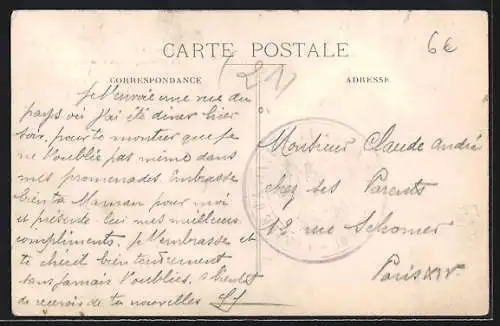 CARTE POSTALE
6€
(21)
CORRESPONDANCE
ADRESSE
Je t'envoie une vue du
pays où j'ai été diner hier
soir, pour te montrer que je
ne t'oublie pas même dans
mes promenades. Embrasse
bien ta Maman pour moi
et présente lui mes meilleurs
compliments. Je t'embrasse et
te chéri bien tendrement
sans jamais t'oublier. A bientôt
de recevoir de tes nouvelles
Monsieur Claude André
chez ses Parents
12 rue Schomer
Paris XIV